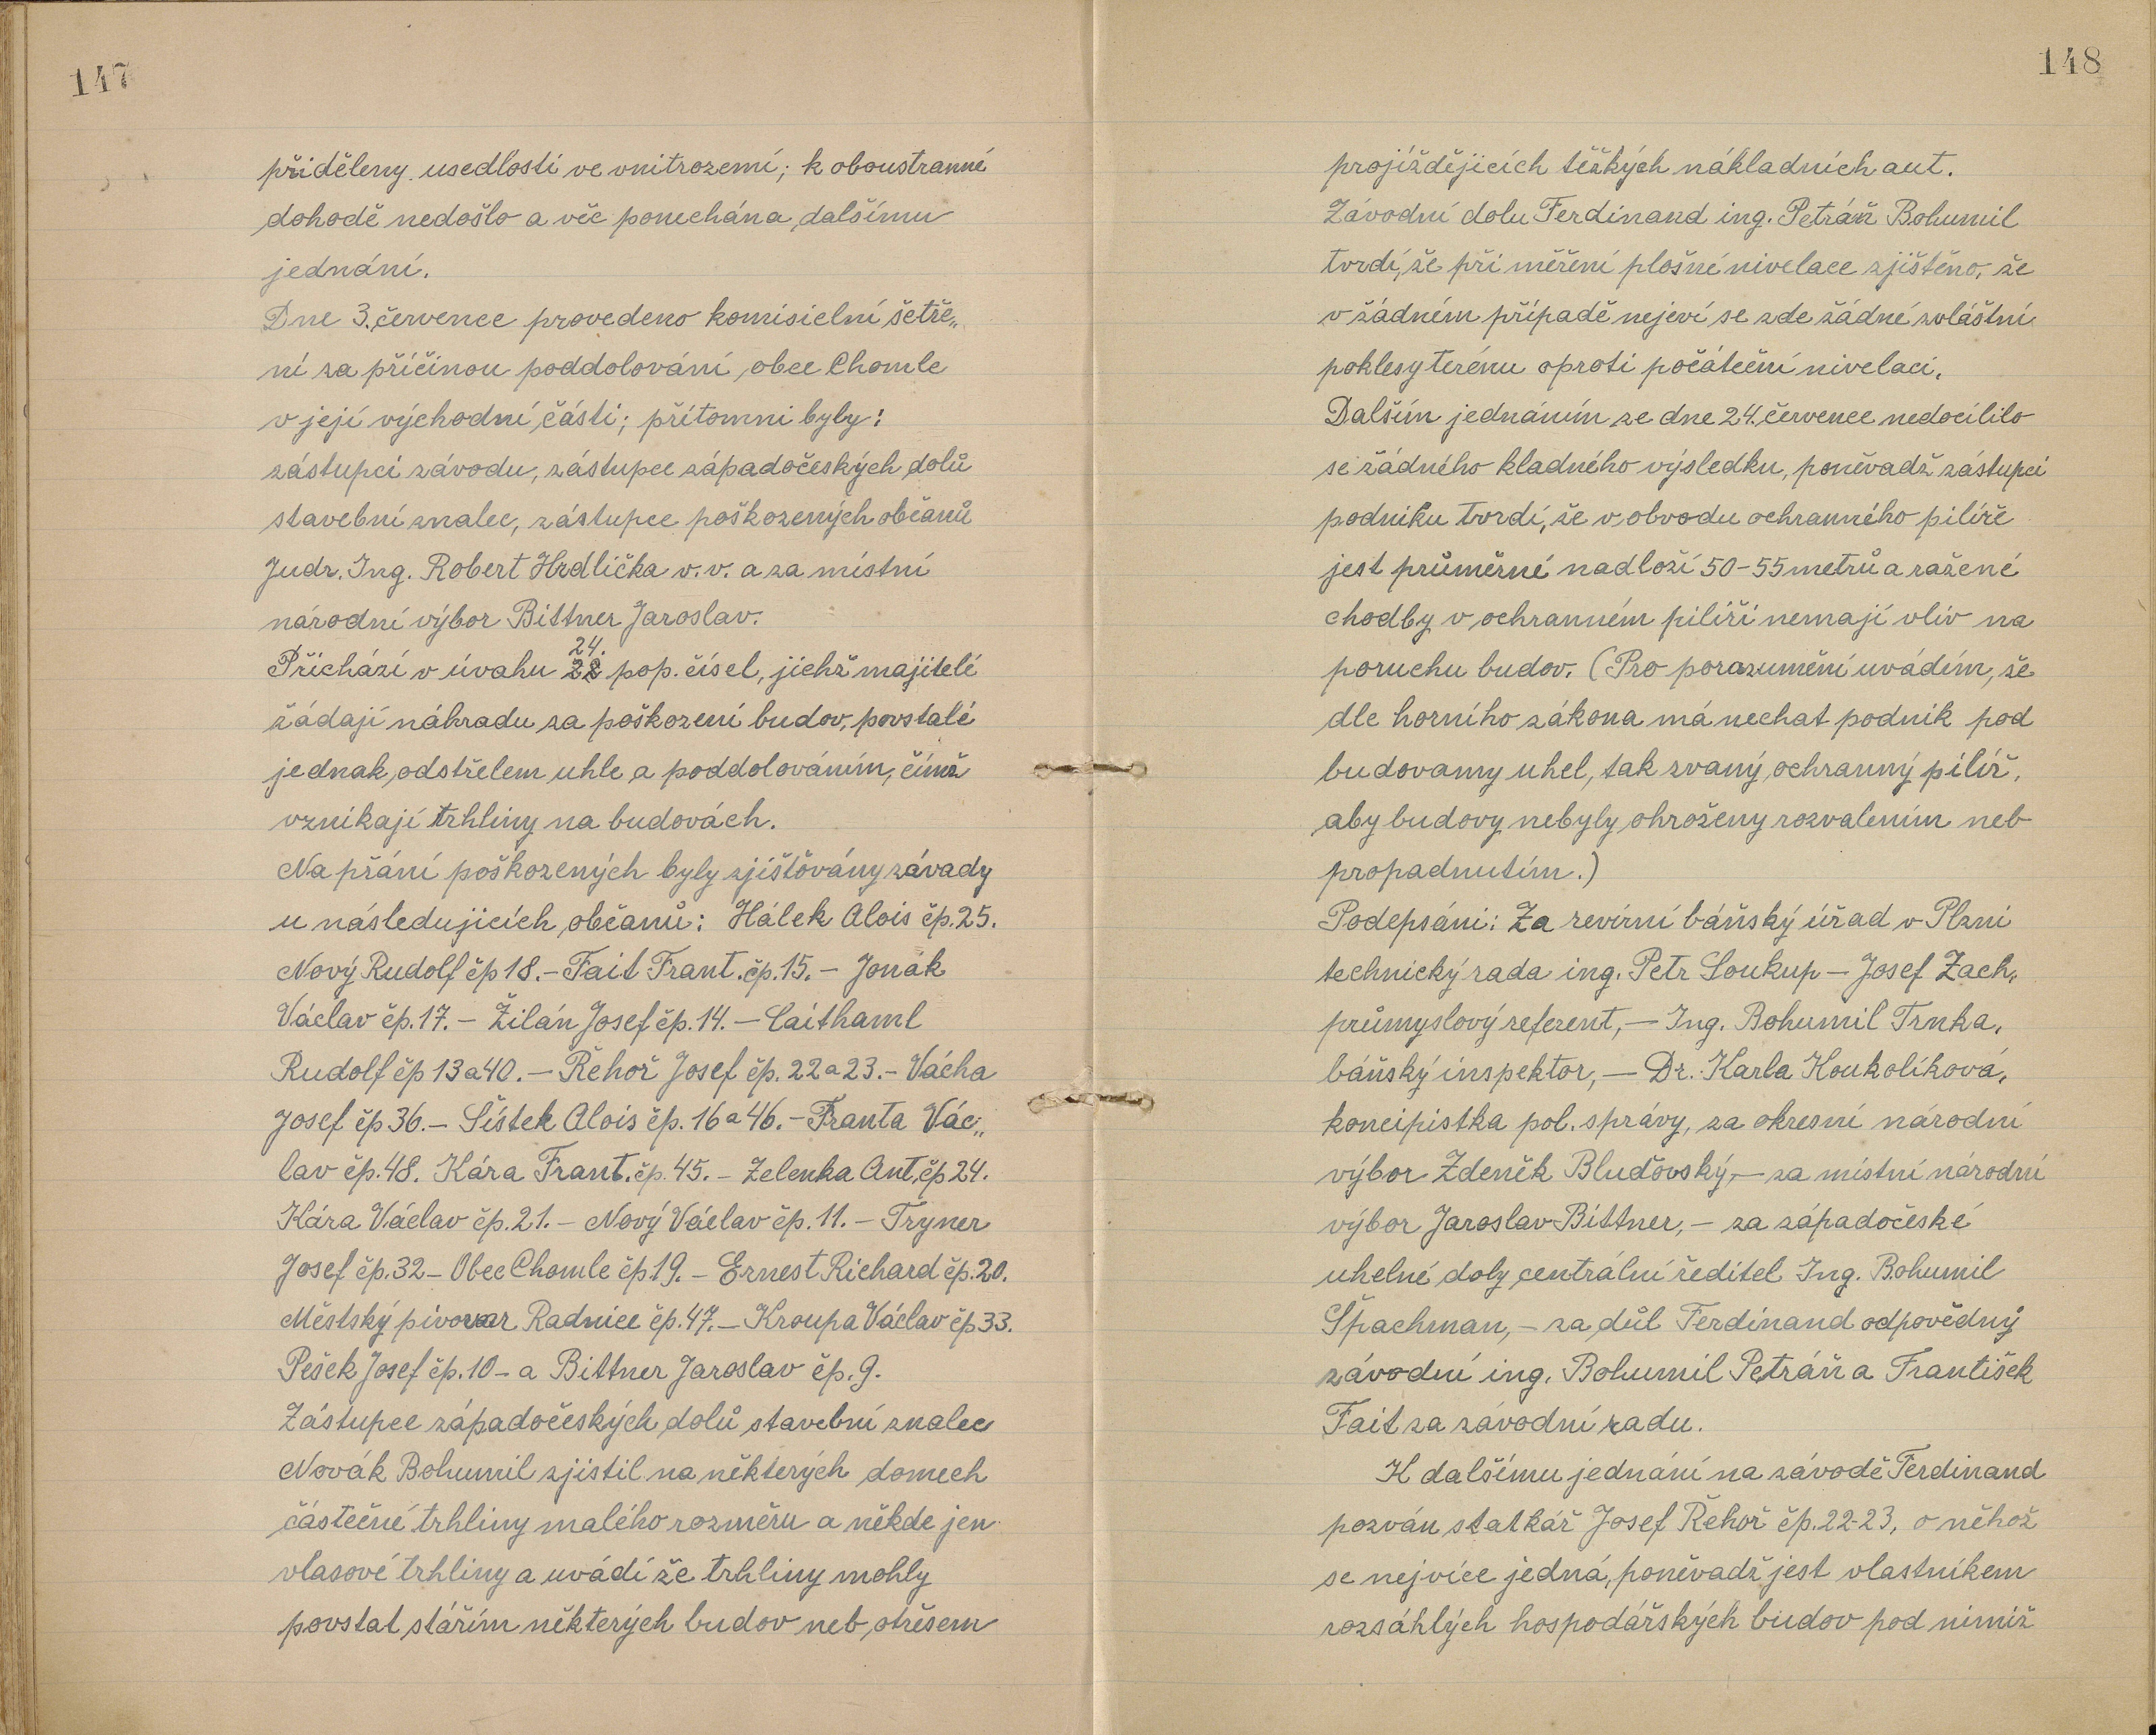 147
přiděleny usedlosti ve vnitrozemí; k oboustranné
dohodě nedošlo a věc ponechána dalšímu
jednání.
Dne 3. července provedeno komisielní šetře„
ní za příčinou poddolování obce Chomle
v její východní části; přítomni byly:
zástupci závodu, zástupce západočeských dolů
stavební znalec, zástupce poškozených občanů
Judr. Ing. Robert Hrdlička v. v. a za místní
národní výbor Bittner Jaroslav.
24.
Přichází v úvahu 22 pop. čísel, jichž majitelé
žádají náhradu za poškození budov, povstalé
jednak odstřelem uhle a poddolováním, čímž
vznikají trhliny na budovách.
Na přání poškozených byly zjišťovány závady
u následujicích občanů: Hálek Alois čp. 25.
Nový Rudolf čp 18. - Fait Frant. čp. 15. - Jonák
Václav čp. 17. - Žilán Josef čp. 14. - Caithaml
Rudolf čp 13 a 40. - Řehoř Josef čp. 22 a 23. - Vácha
Josef čp 36. - Šístek Alois čp. 16 a 46. - Franta Vác„
lav čp. 48. Kára Frant. čp. 45. - Zelenka Ant. čp 24.
Kára Václav čp. 21. - Nový Václav čp. 11. - Tryner
Josef čp. 32 - Obec Chomle čp 19. - Ernest Richard čp. 20.
Městský pivovar Radnice čp. 47. - Kroupa Václav čp 33.
Pešek Josef čp. 10 - a Bittner Jaroslav čp. 9.
Zástupce západočeských dolů stavební znalec
Novák Bohumil zjistil na některých domech
částečné trhliny malého rozměru a někde jen
vlasové trhliny a uvádí že trhliny mohly
povstat stářím některých budov neb otřesem
148
projíždějicích těžkých nákladních aut.
Závodní dolu Ferdinand ing. Petráň Bohumil
tvrdí, že při měření plošné nivelace zjištěno, že
v žádném případě nejeví se zde žádné zvláštní
poklesy terénu oproti počáteční nivelaci.
Dalším jednáním ze dne 24. července nedocílilo
se žádného kladného výsledku, poněvadž zástupci
podniku tvrdí, že v obvodu ochranného pilíře
jest průměrné nadloží 50-55 metrů a ražené
chodby v ochranném pilíři nemají vliv na
poruchu budov. (Pro porozumění uvádím, že
dle horního zákona má nechat podnik pod
budovamy uhel, tak zvaný ochranný pilíř,
aby budovy nebyly ohroženy rozvalením neb
propadnutím.)
Podepsáni: Za revírní báňský úřad v Plzni
technický rada ing. Petr Soukup - Josef Zach,
průmyslový referent, - Ing. Bohumil Trnka,
báňský inspektor, - Dr. Karla Koukolíková,
koncipistka pol. správy, za okresní národní
výbor Zdeněk Bluďovský, - za místní národní
výbor Jaroslav Bittner, - za západočeské
uhelné doly centrální ředitel Ing. Bohumil
Špachman, - za důl Ferdinand odpovědný
závodní ing. Bohumil Petráň a František
Fait za závodní radu.
K dalšímu jednání na závodě Ferdinand
pozván statkář Josef Řehoř čp. 22-23, o něhož
se nejvíce jedná, poněvadž jest vlastníkem
rozsáhlých hospodářských budov pod nimiž